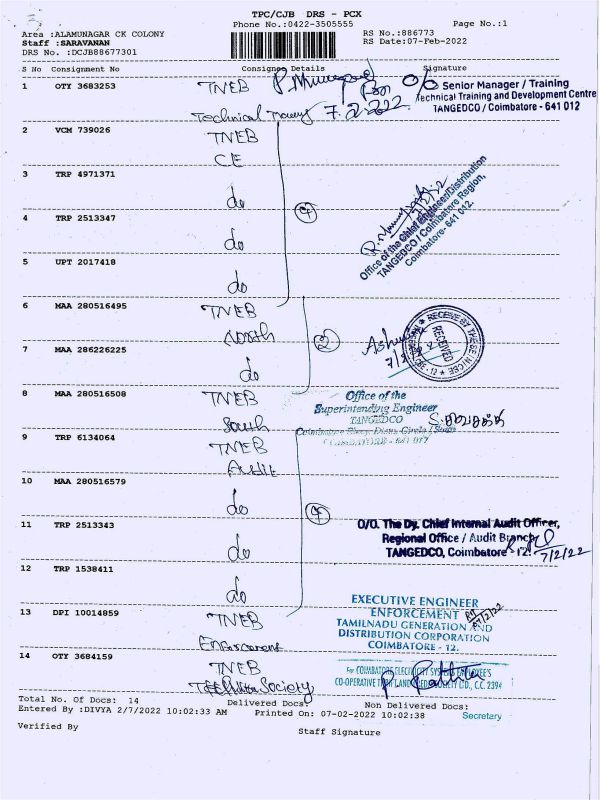 TPC/CJB DRS - PCX
Phone No.:0422-3505555 Page No.:1
Area :ALAMUNAGAR CK COLONY
Staff :SARAVANAN
DRS No. :DCJB88677301
RS No.:886773
RS Date:07-Feb-2022
S No Consignment No Consignee Details Signature
1 OTY 3683253 TNEB
Technical 7.2.2022
O/o Senior Manager / Training
Technical Training and Development Centre
TANGEDCO / Coimbatore - 641 012
2 VCM 739026 TNEB
CE
3 TRP 4971371
do
4 TRP 2513347
do
Office of the Chief Engineer/Distribution
TANGEDCO / Coimbatore Region,
Coimbatore- 641 012.
5 UPT 2017418
do
6 MAA 280516495 TNEB
North
2
RECEIVED
7 MAA 286226225
do
8 MAA 280516508 TNEB
South
Office of the
Superintending Engineer
TANGEDCO
9 TRP 6134064 TNEB
Audit
10 MAA 280516579
do
11 TRP 2513343
do
O/O. The Dy. Chief Internal Audit Officer,
Regional Office / Audit Branch
TANGEDCO, Coimbatore - 12.
7/2/22
12 TRP 1538411
do
13 DPI 10014859 TNEB
Enforcement
EXECUTIVE ENGINEER
ENFORCEMENT
TAMILNADU GENERATION AND
DISTRIBUTION CORPORATION
COIMBATORE - 12.
14 OTY 3684159 TNEB
Society
For COIMBATORE ELECTRICITY SYSTEM EMPLOYEE'S
CO-OPERATIVE THRIFT AND CREDIT SOCIETY LTD., C.C. 2394
Secretary
Total No. Of Docs: 14 Delivered Docs: Non Delivered Docs:
Entered By :DIVYA 2/7/2022 10:02:33 AM Printed On: 07-02-2022 10:02:38
Verified By Staff Signature